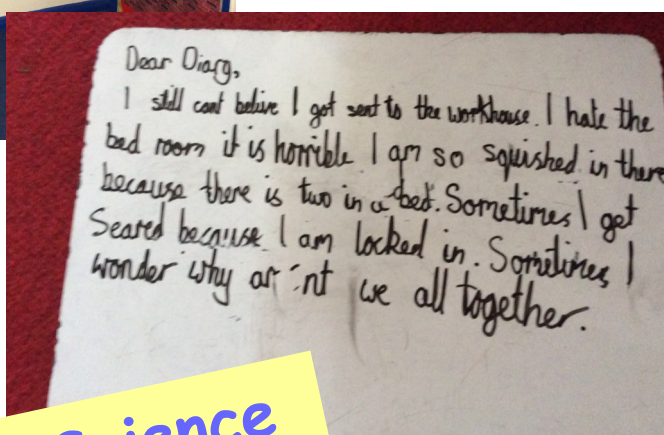 Dear Diary,
I still cant belive I got sent to the workhouse. I hate the
bed room it is horrible I am so squished in there
because there is two in a bed. Sometimes I get
Scared because I am locked in. Sometimes I
wonder why ar'nt we all together.
Science